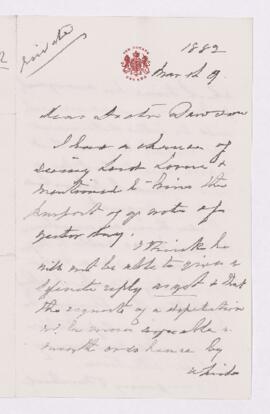 private
THE SENATE
CANADA
1882
March 9
Dear Doctor Dawson
I had a chance of
seeing Lord Lorne &
mentioned to him the
purport of yr note of
yesterday.
I think he
will not be able to give a
definite reply as yet & that
the request of a deputation
wd be more agreeable &
smooth